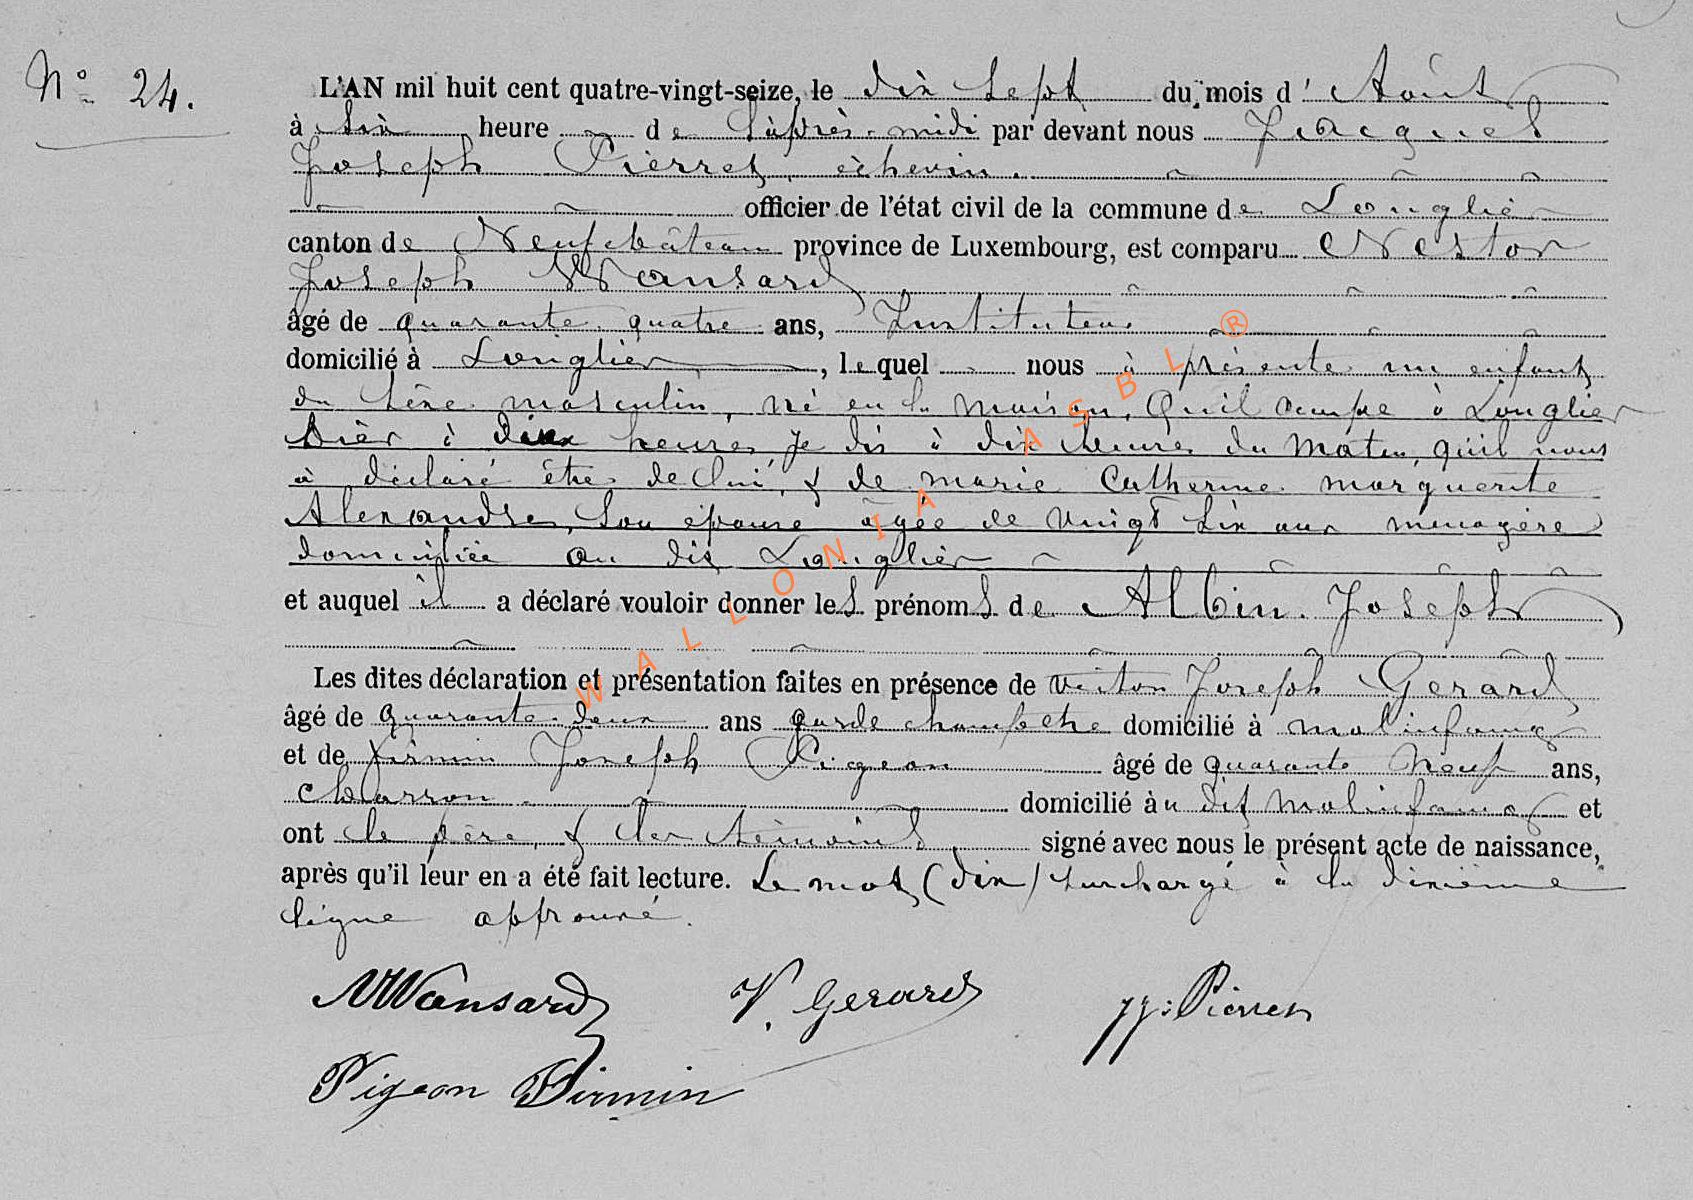 N° 24.
L'AN mil huit cent quatre-vingt-seize, le dix sept du mois d' Août
à six heure de l'après-midi par devant nous Jacques
Joseph Pierret, échevin.
officier de l'état civil de la commune de Longlier
canton de Neufchâteau province de Luxembourg, est comparu Nestor
Joseph Wansard
âgé de quarante quatre ans, Instituteur
domicilié à Longlier, lequel nous à présenté un enfant
du sexe masculin, né en la maison, qu'il occupe à Longlier
hièr à dix heures, je dis à dix heures du matin, qu'il nous
à déclaré être de lui, & de marie Catherine marguerite
Alexandre, son épouse âgée de vingt six ans ménagère
domiciliée au dit Longlier
et auquel il a déclaré vouloir donner les prénoms de Albin Joseph
Les dites déclaration et présentation faites en présence de victor Joseph Gerard
âgé de quarante-deux ans garde champetre domicilié à molinfaing
et de firmin Joseph Pigeon âgé de quarante neuf ans,
charron domicilié àu dit molinfaing et
ont le père, & les témoins signé avec nous le présent acte de naissance,
après qu'il leur en a été fait lecture. Le mot (dix) surchargé à la dixième
ligne approuvé.
NWansard V. Gerard JJ: Pierret
Pigeon Firmin
WALLONIA ASBL ®